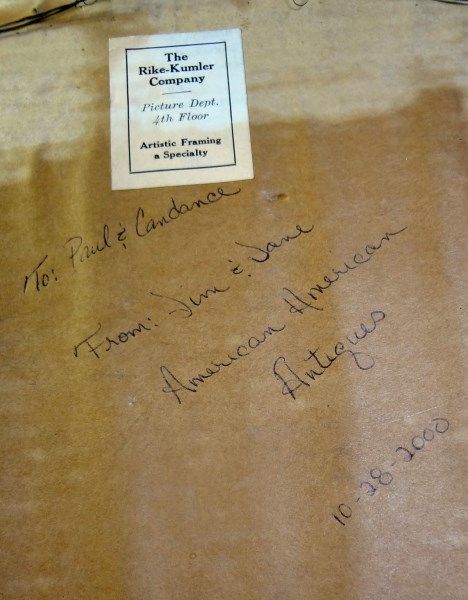 The
Rike-Kumler
Company
Picture Dept.
4th Floor
Artistic Framing
a Specialty
To: Paul & Candance
From: Jim & Jane
American American
Antiques
10-28-2000